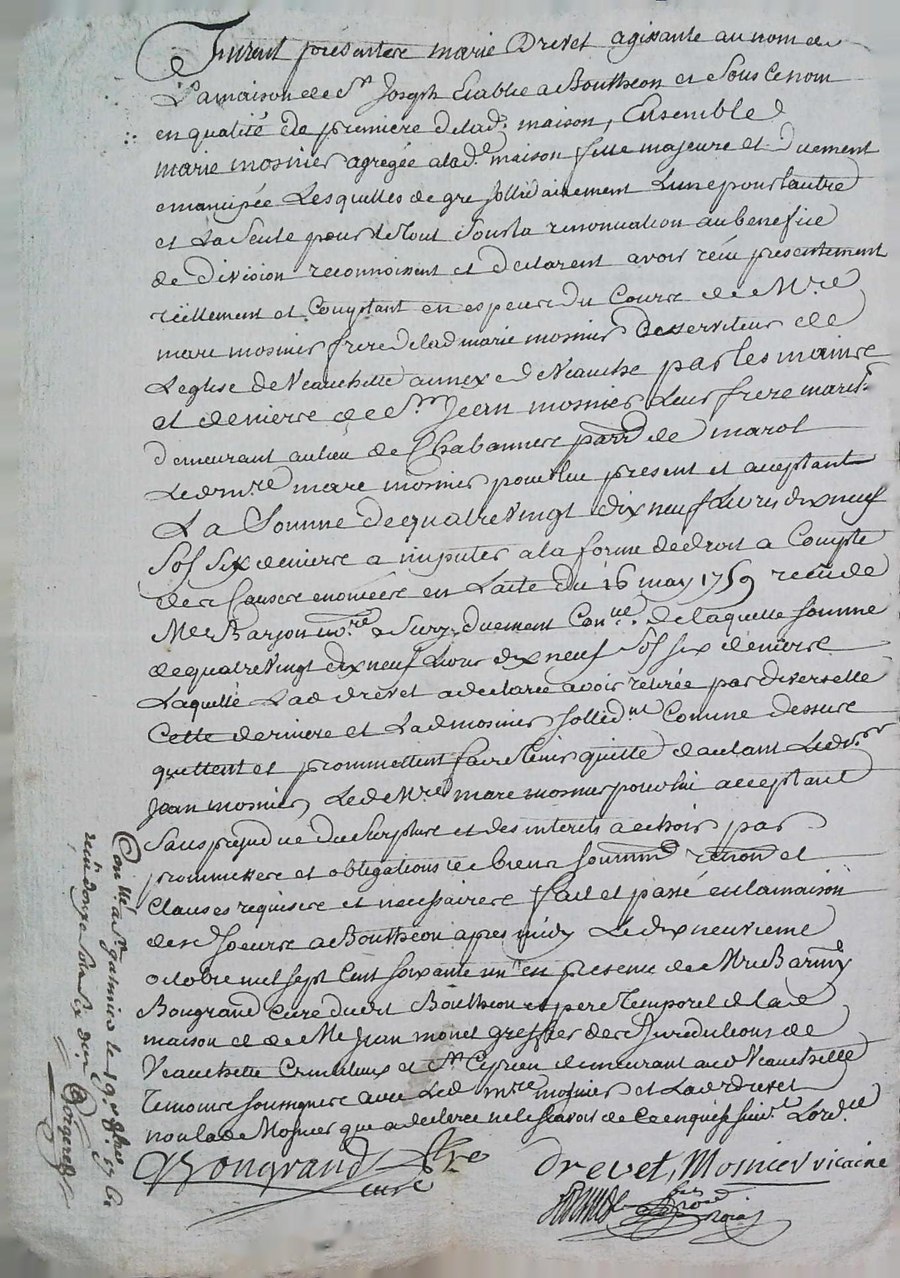 Furent presentere marie Drevet agissante au nom de
La maison de St Joseph Etablie a Bouthéon et Sous le nom
en qualité de premiere de lad. maison, Ensemble
marie mosnier agregée a lad.e maison fille majeure et duement
emancipée Lesquelles de gre sollidairement Lune pour lautre
et La Seule pour le tout Sous la renonciation au benefice
de division reconnoissent et declarent avoir réçu presentement
réellement et Comptant en especes du Cours de Mre
marc mosnier frere de lad marie mosnier Desserviteur de
Leglise de Veauchette annexe de Veauche par les mains
et deniers de Sr Jean mosnier Leur frere
demeurant au lieu de Chabannere parr de marol
Led mre marc mosnier pour luy present et acceptant
La Somme de quatre vingt dix neuf Livres dix neuf
Sols Six deniers a imputer a la forme de droit a Compte
des Causes enoncées en Lacte du 16 may 1759 recu de
Me Barjon nore a Sury duement Con.lé de laquelle somme
de quatre vingt dix neuf Livres dix neuf Sols six deniers
Laquelle Lad drevet a declarée avoir retirée par diverselle
Cette derniere et Lad mosnier sollid.nt Comme dessus
quittent et promettent faire tenir quitte dautant Led. Sr
Jean mosnier, Led Mre marc mosnier pour lui acceptant
Sans prejudice du Surplus et des interets a echoir par
promesses et obligations de biens soumm renon et
Clauses requises et necessaires fait et passé en la maison
des Soeurs a Bouthéon apres midy Le dix neuvieme
octobre mil sept Cent soixante un en presence de Mre Barmy
Bougrand Curé dudit Bouthéon et pere Temporel de lad
maison et de Me Jean monet greffier des Juridictions de
Veauchette et St Cyprien demeurant aud Veauchette
Temoins soussignes avec Led mre mosnier et Lad drevet
non lad Mosnier que a declaree ne le scavoir de ce enquise
Bougrand ptre
curé
Drevet, Mosnier vicaire
Con.llé a St galmier le 19 8bre 1761
recu douze sols six den